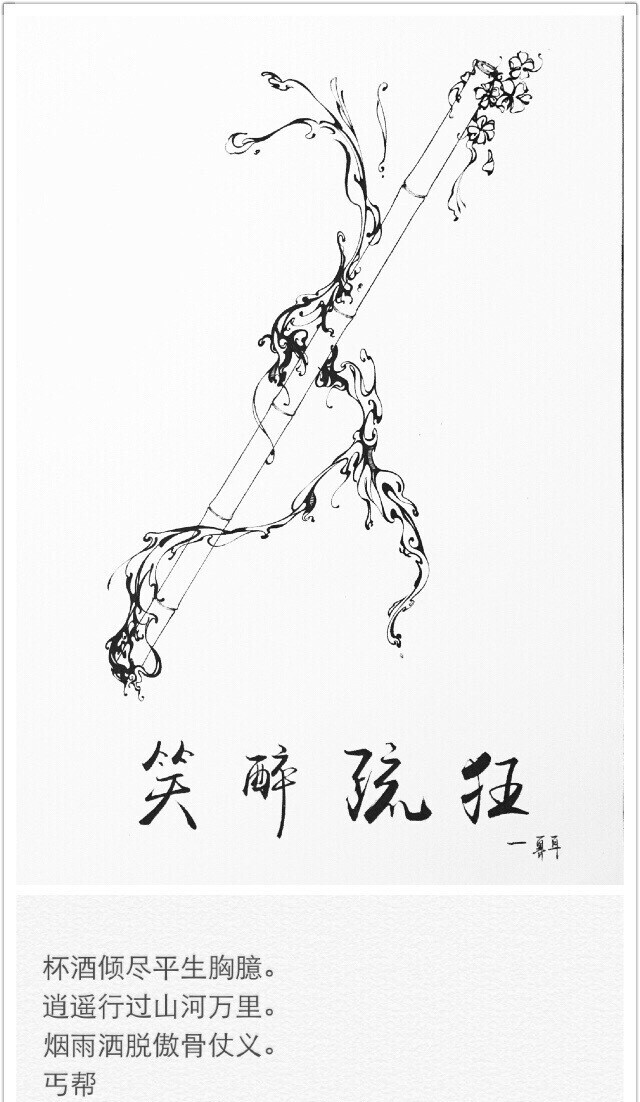 笑醉疏狂
杯酒倾尽平生胸臆。
逍遥行过山河万里。
烟雨洒脱傲骨仗义。
丐帮